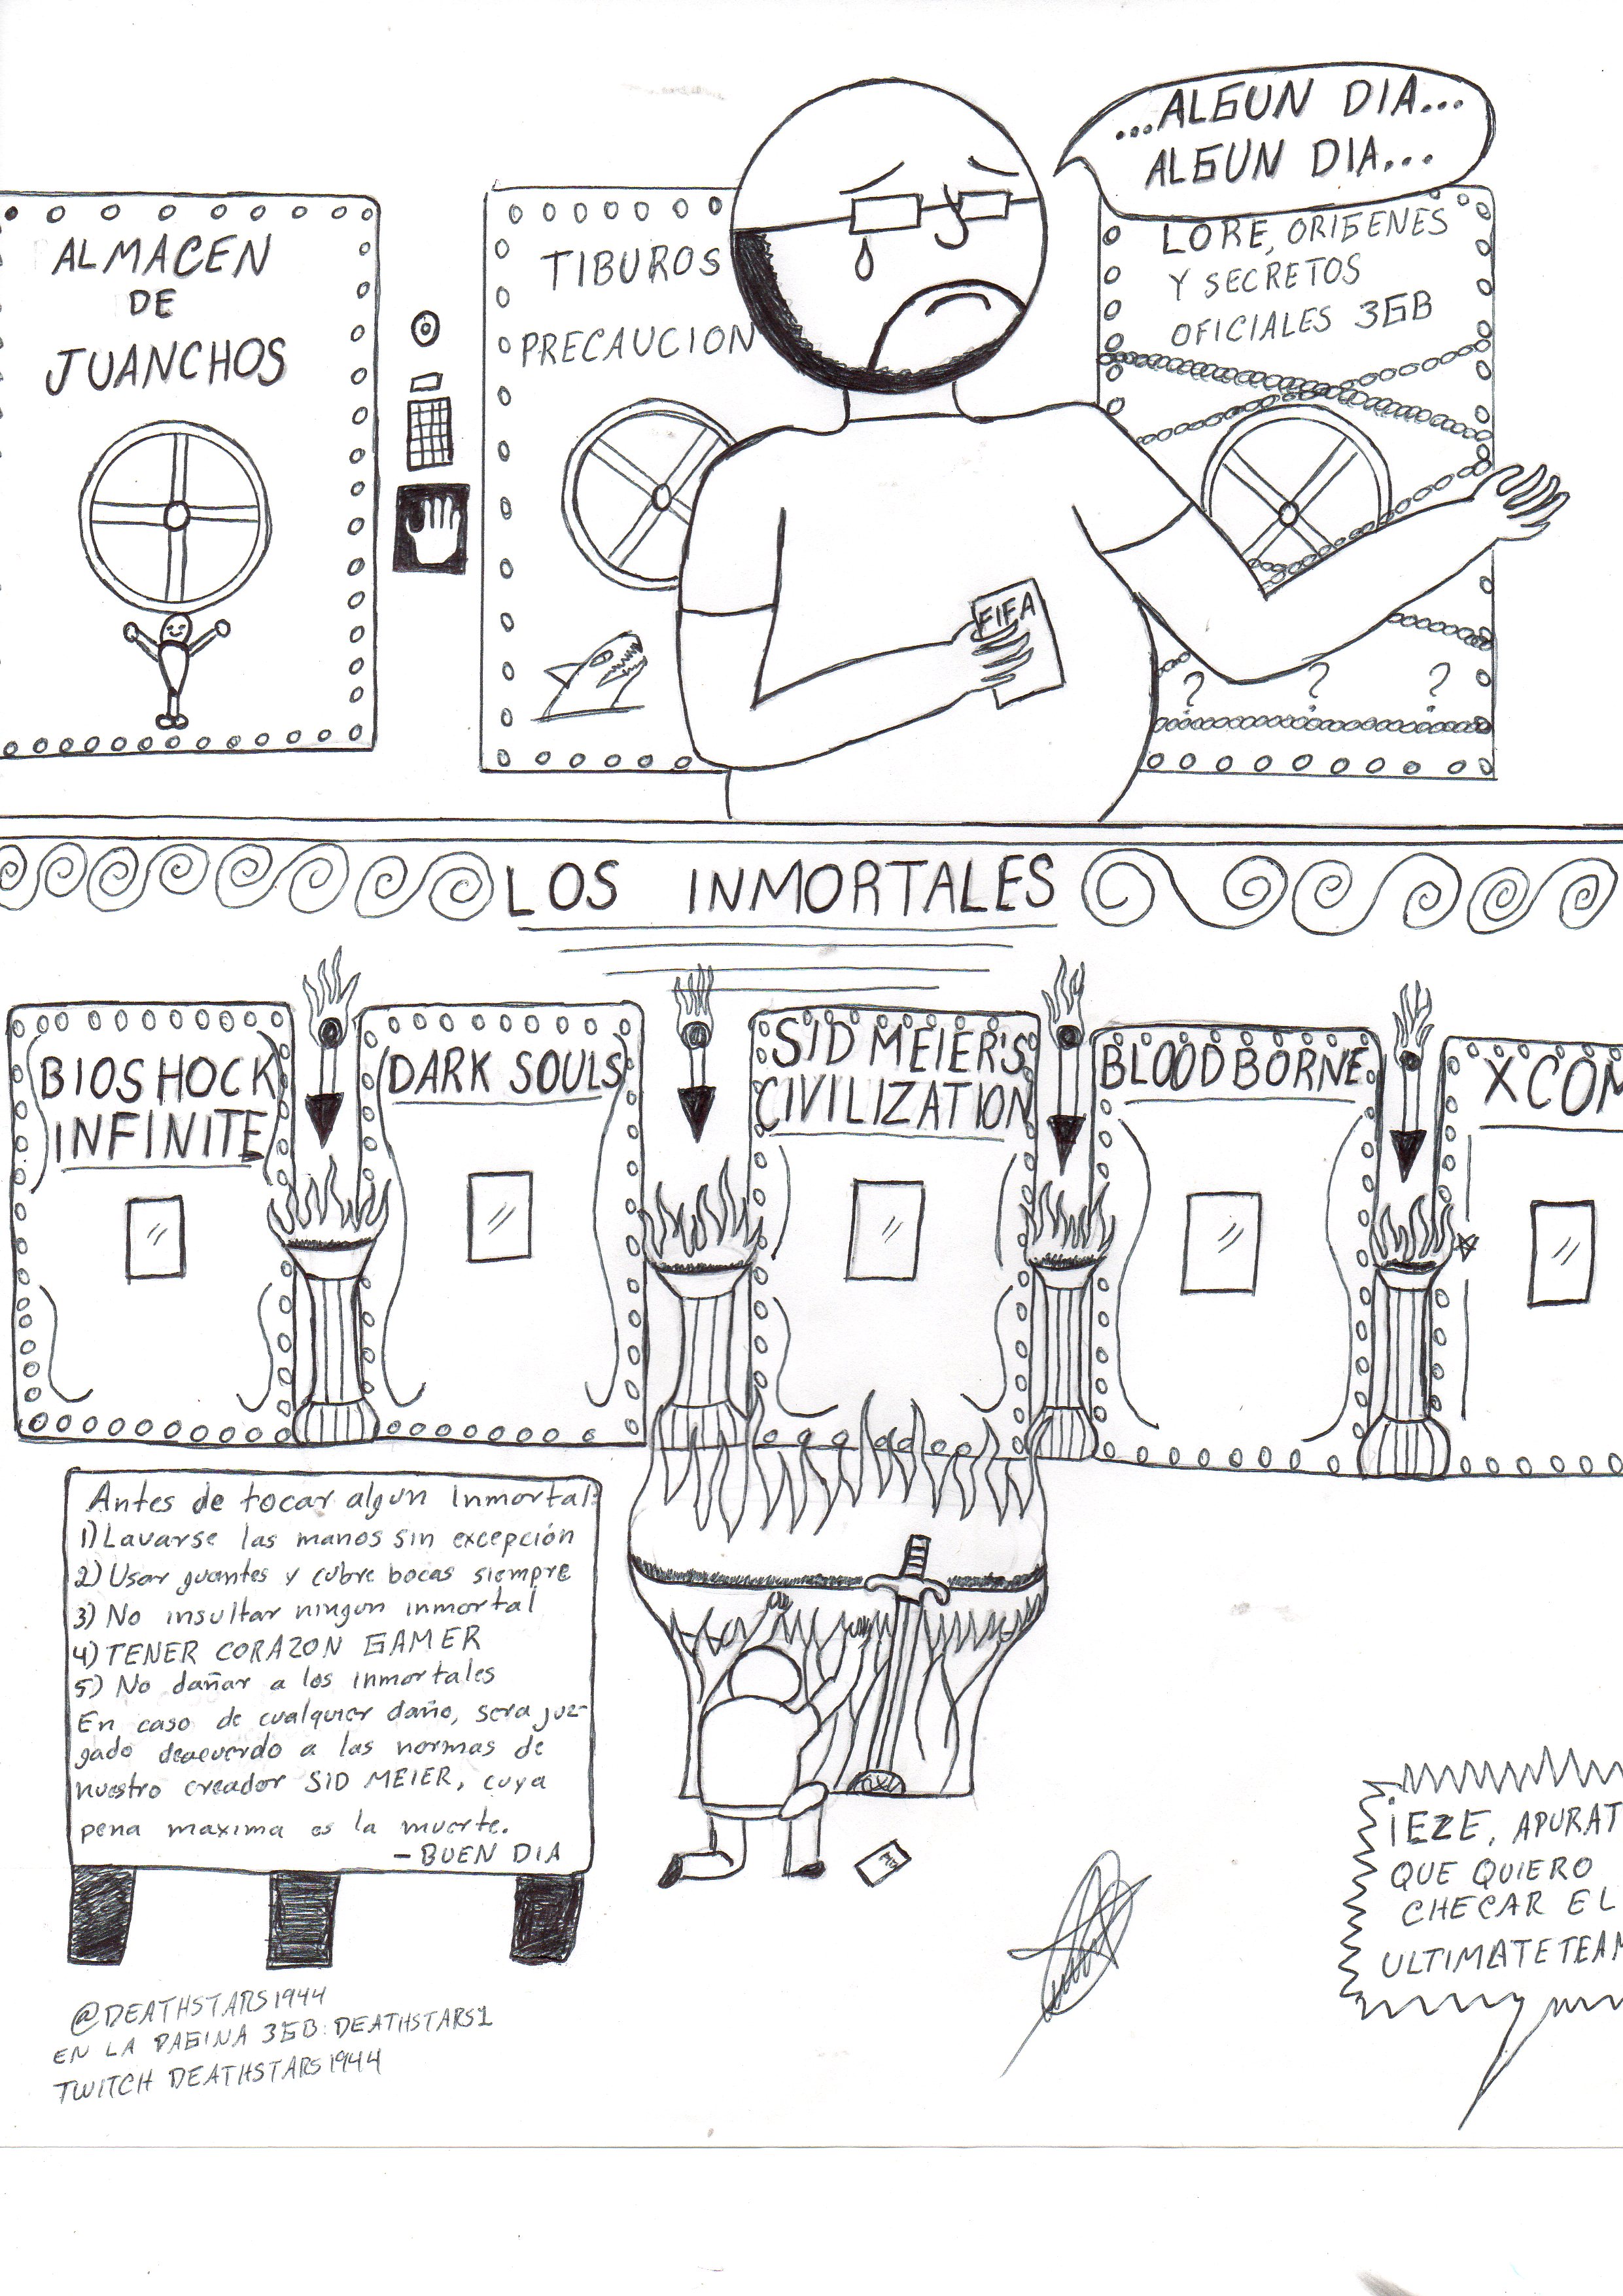 ...ALGUN DIA...
ALGUN DIA...
ALMACEN
DE
JUANCHOS
TIBUROS
PRECAUCION
LORE, ORIGENES
Y SECRETOS
OFICIALES 3GB
FIFA
? ? ?
LOS INMORTALES
BIOSHOCK
INFINITE
DARK SOULS
SID MEIER'S
CIVILIZATION
BLOODBORNE
XCOM
Antes de tocar algun Inmortal:
1) Lavarse las manos sin excepción
2) Usar guantes y cubre bocas siempre
3) No insultar ningun inmortal
4) TENER CORAZON GAMER
5) No dañar a los inmortales
En caso de cualquier daño, sera juz-
gado deacuerdo a las normas de
nuestro creador SID MEIER, cuya
pena maxima es la muerte.
- BUEN DIA
¡EZE, APURAT
QUE QUIERO
CHECAR EL
ULTIMATE TEAM
@DEATHSTARS1944
EN LA PAGINA 3GB: DEATHSTARS1
TWITCH DEATHSTARS1944